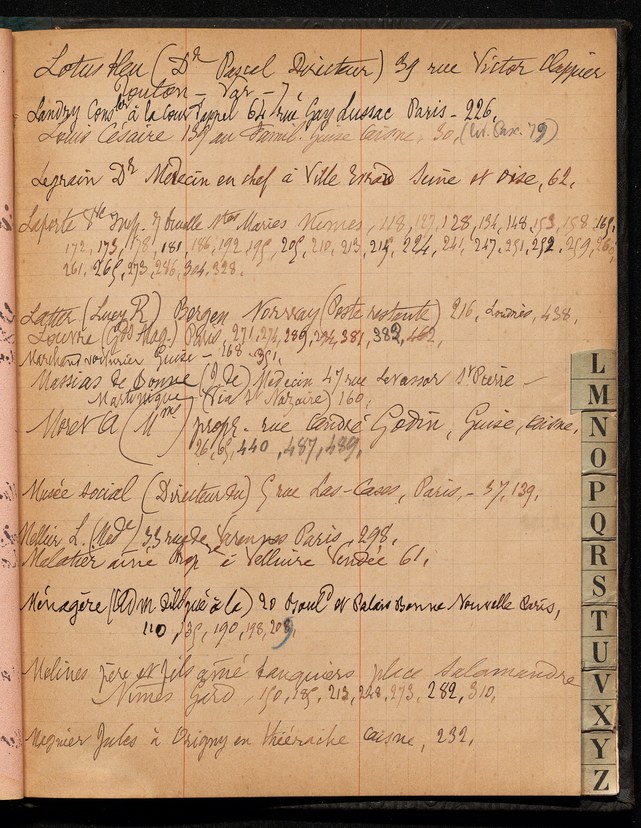 Lotus bleu (Dr Pascal Directeur) 39 rue Victor Clappier
Toulon - Var - 7.
Landry Conser à la Cour d'appel 64 rue Gay Lussac Paris - 226,
Louis Césaire 139 au Famil. Guise Aisne, 30,
Legrain Dr Médecin en chef à Ville Evrard Seine et Oise, 62.
Laporte Vve 7 ruelle Stes Maries Nimes, 118, 127, 128, 134, 148, 153, 158, 165,
172, 173, 178, 181, 186, 192, 195, 205, 210, 213, 215, 224, 241, 247, 251, 252, 259, 260,
261, 265, 273, 286, 304, 328.
(Lucy R) Bergen Norway (Poste restante) 216, Londres, 438,
Louvre (Gds Mag.) Paris, 271, 276, 289, 294, 381, 382, 462,
Marchand voiturier Guise - 168
Massias de Bonne (J de) Médecin 47 rue Levassor St Pierre -
Martinique (Via St Nazaire) 160,
Moret A (Mme) propr. rue André Godin, Guise, Aisne.
26, 65, 440, 487, 489,
Musée social (Directeur du) 5 rue Las-Cases, Paris, - 37, 139,
Mellier L. (Made) 33 rue de Varennes Paris, 298.
Malatier aîné à Velluire Vendée 61.
Ménagère (Adm délégué à la) 20 Boul d et Palais Bonne Nouvelle Paris,
110, 135, 190, 198, 209,
Molines père et fils aîné banquiers place Salamandre
Nimes Gard, 150, 185, 213, 248, 273, 282, 310,
Megnier Jules à Origny en Thiérache Aisne, 232,
L
M
N
O
P
Q
R
S
T
U
V
X
Y
Z